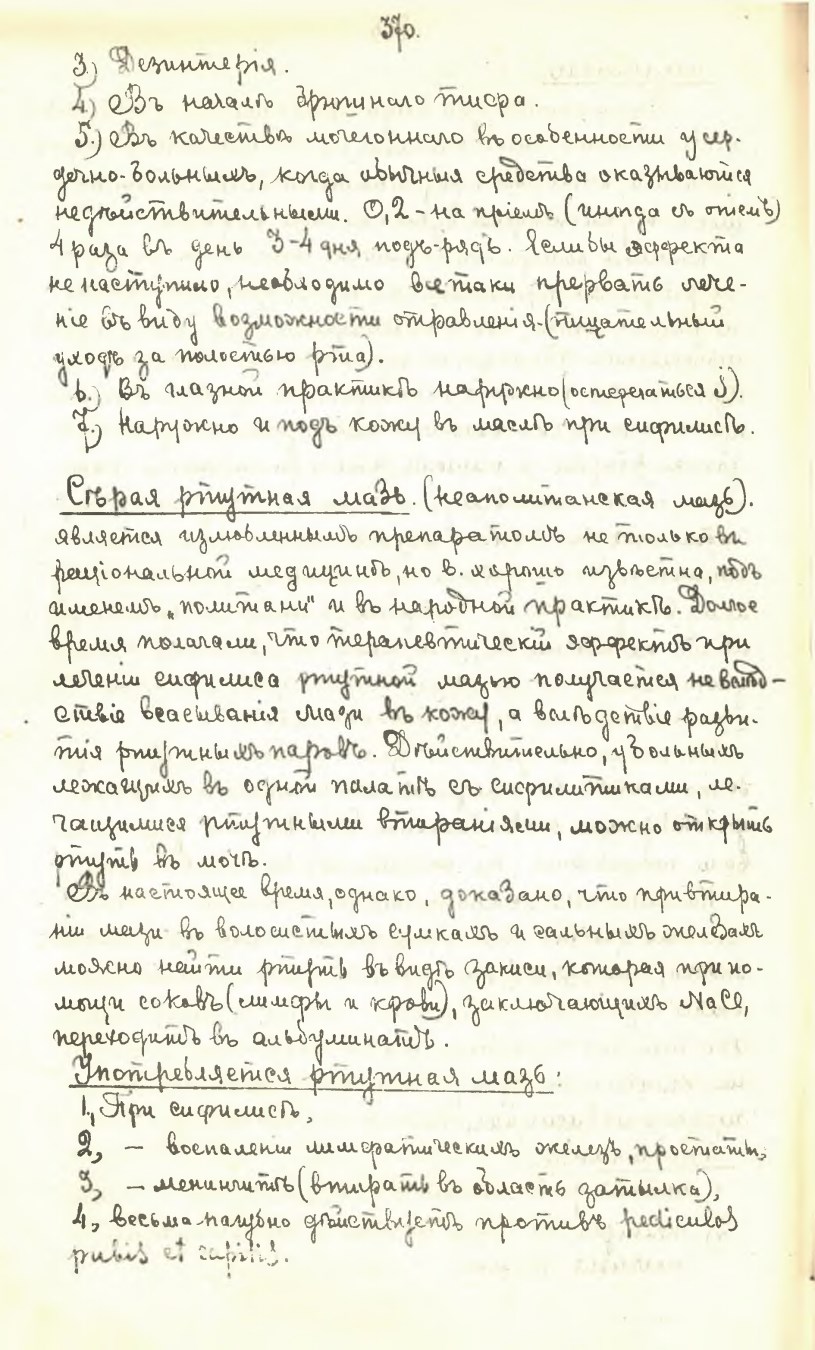 370.
3.) Дезинтерія.
4) Въ началѣ брюшнаго тифа.
5.) Въ качествѣ мочегоннаго въ особенности у сер-
дечно-больныхъ, когда обычныя средства оказываются
недѣйствительными. 0,2 - на пріемъ (иногда съ опіемъ)
4 раза въ день 3-4 дня подъ-рядъ. Если бы эффекта
не наступило, необходимо всетаки прервать лече-
ніе въ виду возможности отравленія. (тщательный
уходъ за полостью рта).
6.) Въ глазной практикѣ наружно (остерегаться J).
7.) Наружно и подъ кожу въ маслѣ при сифилисѣ.
Сѣрая ртутная мазь. (неаполитанская мазь).
является излюбленнымъ препаратомъ не только въ
раціональной медицинѣ, но в. хорошо извѣстна, подъ
именемъ „политани" и въ народной практикѣ. Долгое
время полагали, что терапевтическій эффектъ при
леченіи сифилиса ртутной мазью получается не вслѣд-
ствіе всасыванія мази въ кожу, а вслѣдствіе разви-
тія ртутныхъ паровъ. Дѣйствительно, у больныхъ
лежащихъ въ одной палатѣ съ сифилитиками, ле-
чащимися ртутными втираніями, можно открыть
ртуть въ мочѣ.
Въ настоящее время, однако, доказано, что при втира-
ніи мази въ волосистыхъ сумкахъ и сальныхъ железахъ
можно найти ртуть въ видѣ закиси, которая при по-
мощи соковъ (лимфы и крови), заключающихъ NaCl,
переходитъ въ альбуминатъ.
Употребляется ртутная мазь:
1., При сифилисѣ,
2, — воспаленіи лимфатическихъ железъ, простаты,
3, — менингитѣ (втирать въ область затылка),
4, весьма пагубно дѣйствуетъ противъ pediculos
pubis et capitis.